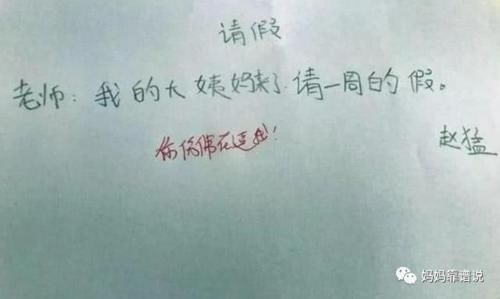 请假
老师:我的大姨妈来了.请一周的假。
你仿佛在逗我!
赵猛
妈妈靠谱说